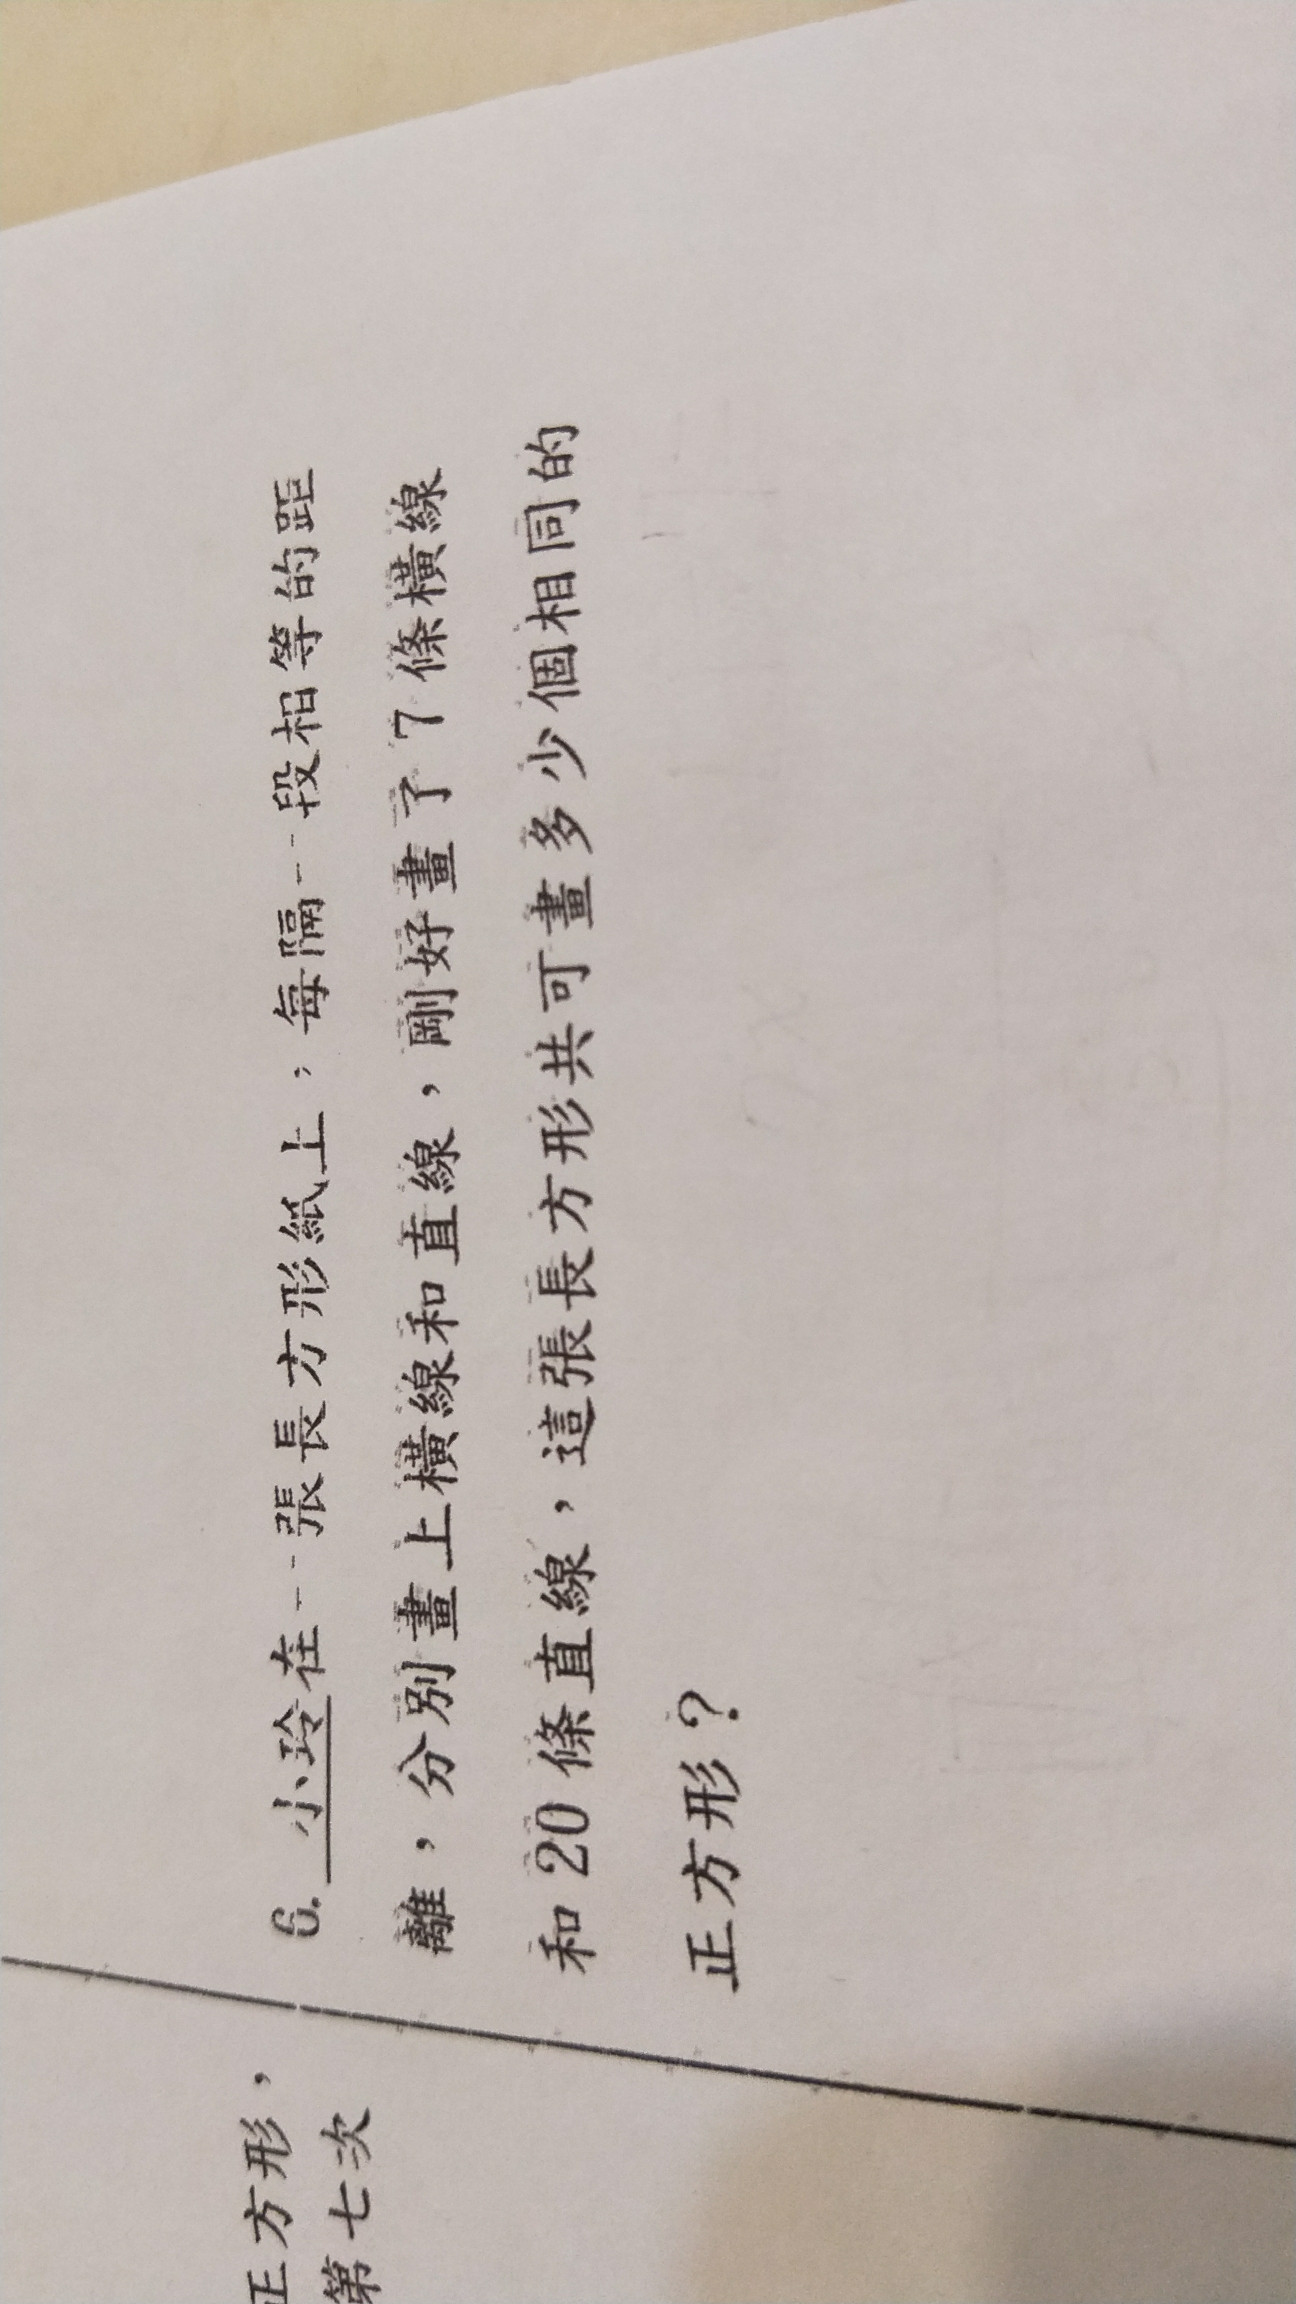 6. 小玲在一張長方形紙上，每隔一段相等的距
離，分別畫上橫線和直線，剛好畫了 7 條橫線
和 20 條直線，這張長方形共可畫多少個相同的
正方形？
正方形，
第七次